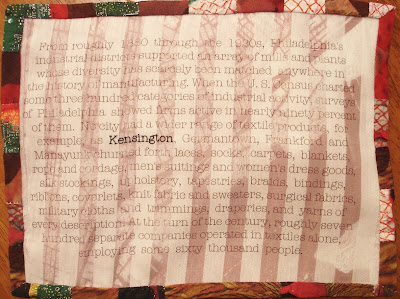 From roughly 1880 through the 1920s, Philadelphia's
industrial districts supported an array of mills and plants
whose diversity has scarcely been matched anywhere in
the history of manufacturing. When the U.S. Census charted
some three hundred categories of industrial activity, surveys
of Philadelphia showed firms active in nearly ninety percent
of them. No city had a wider range of textile products, for
example, as Kensington, Germantown, Frankford and
Manayunk churned forth laces, socks, carpets, blankets,
rope and cordage, men's suitings and women's dress goods,
silk stockings, upholstery, tapestries, braids, bindings,
ribbons, coverlets, knit fabric and sweaters, surgical fabrics,
military cloths and trimmings, draperies, and yarns of
every description. At the turn of the century, roughly seven
hundred separate companies operated in textiles alone,
employing some sixty thousand people.